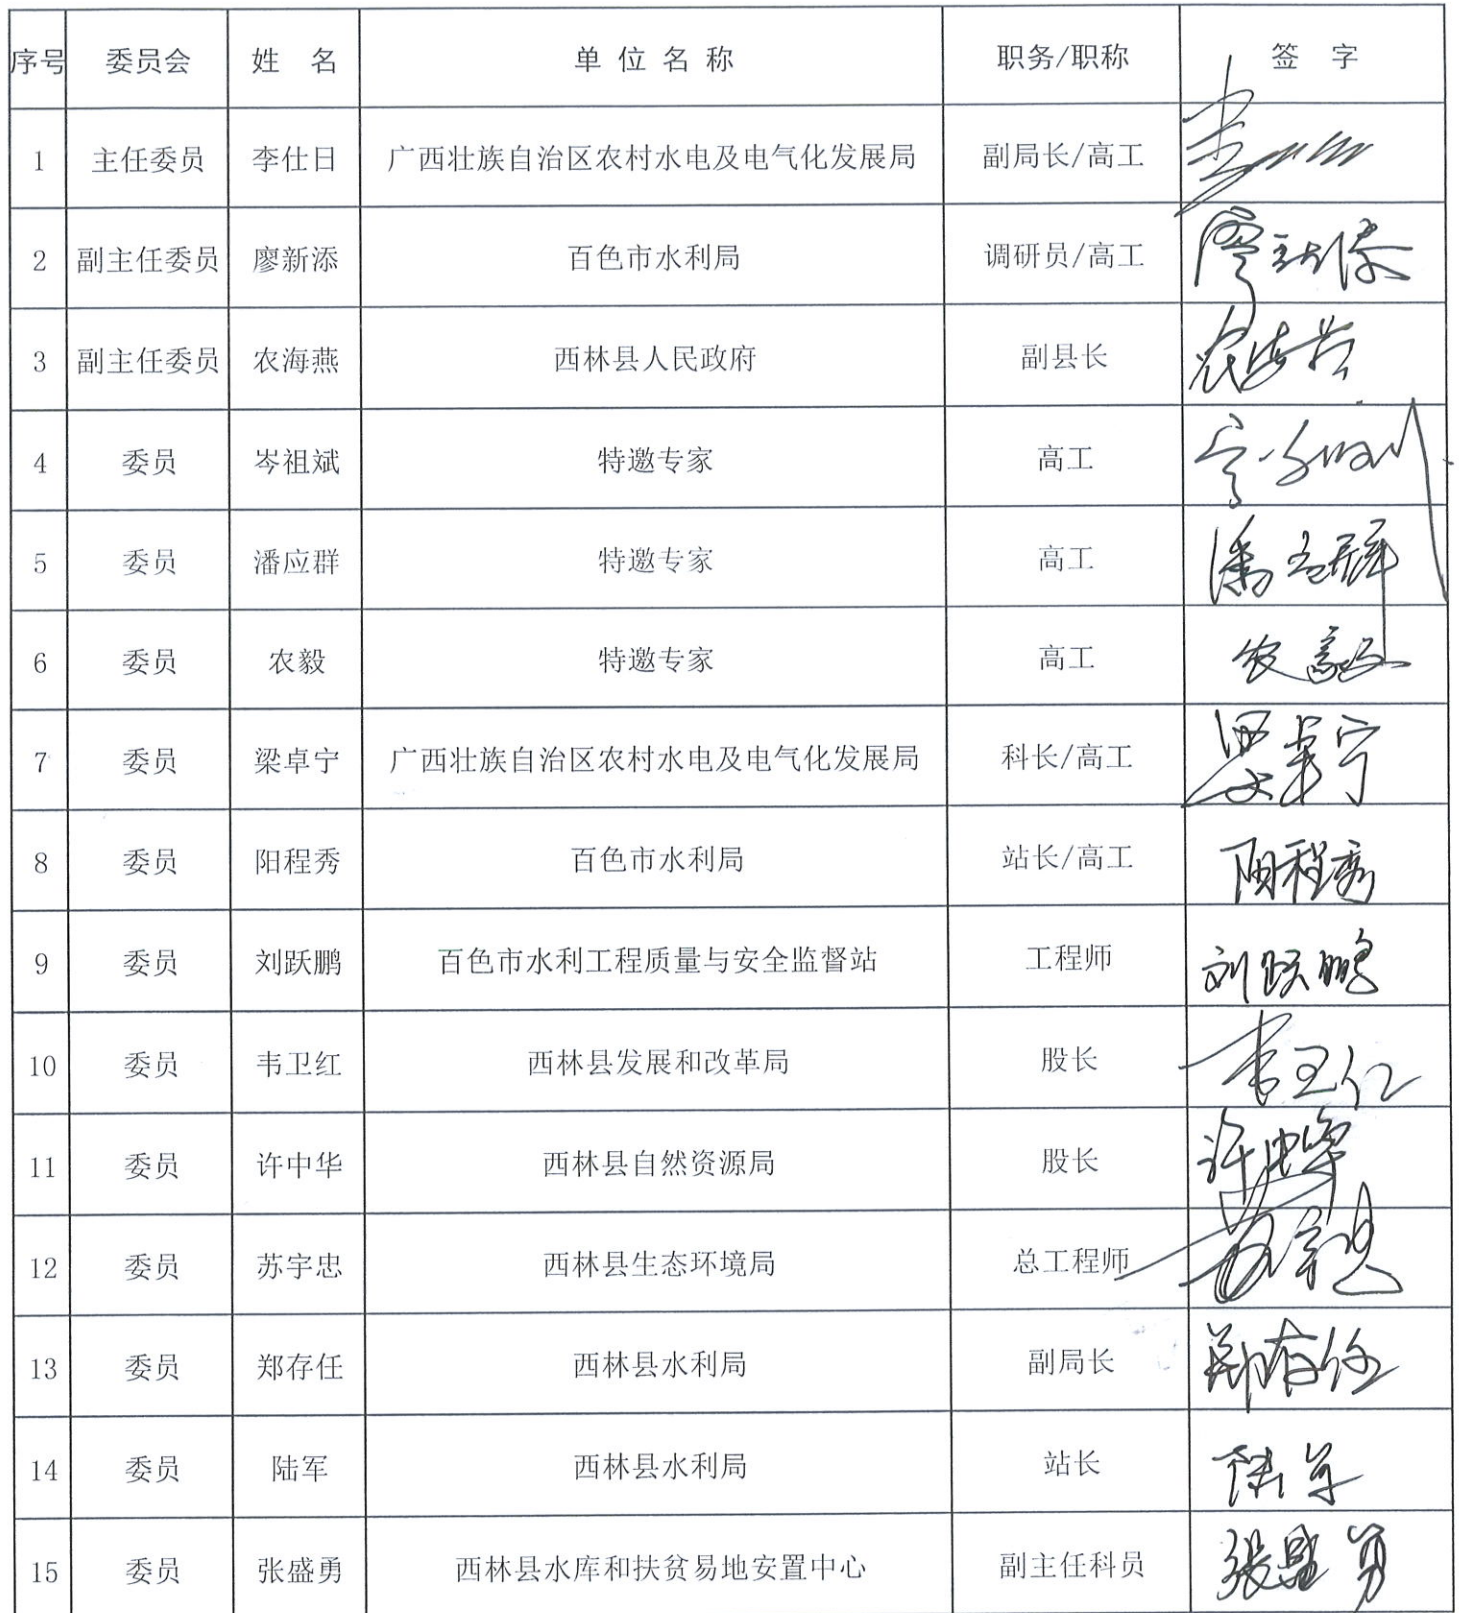 序号 委员会 姓 名 单 位 名 称 职务/职称 签 字
1 主任委员 李仕日 广西壮族自治区农村水电及电气化发展局 副局长/高工
2 副主任委员 廖新添 百色市水利局 调研员/高工 廖新添
3 副主任委员 农海燕 西林县人民政府 副县长 农海燕
4 委员 岑祖斌 特邀专家 高工
5 委员 潘应群 特邀专家 高工 潘应群
6 委员 农毅 特邀专家 高工 农毅
7 委员 梁卓宁 广西壮族自治区农村水电及电气化发展局 科长/高工 梁卓宁
8 委员 阳程秀 百色市水利局 站长/高工 阳程秀
9 委员 刘跃鹏 百色市水利工程质量与安全监督站 工程师 刘跃鹏
10 委员 韦卫红 西林县发展和改革局 股长
11 委员 许中华 西林县自然资源局 股长 许中华
12 委员 苏宇忠 西林县生态环境局 总工程师 苏宇忠
13 委员 郑存任 西林县水利局 副局长 郑存任
14 委员 陆军 西林县水利局 站长 陆军
15 委员 张盛勇 西林县水库和扶贫易地安置中心 副主任科员 张盛勇